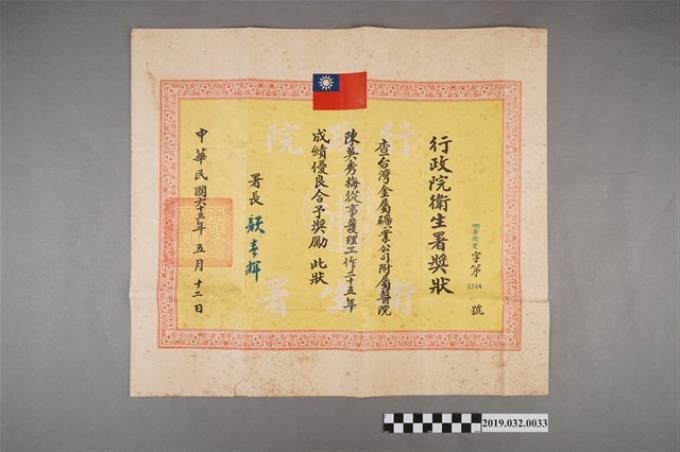 行政院衛生署獎狀
字第
1344
號
查台灣金屬礦業公司附屬醫院
陳吳秀梅從事護理工作二十五年
成績優良合予獎勵 此狀
署長
中華民國六十五年五月十二日
行政院
衛生署
2019.032.0033